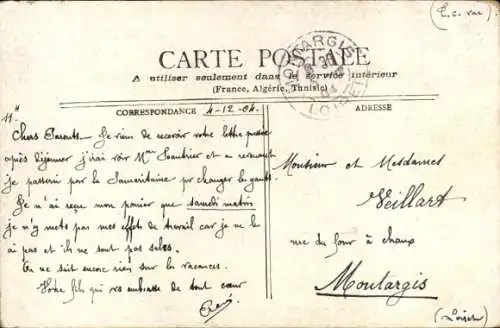 (T. c. rue)
CARTE POSTALE
A utiliser seulement dans le service intérieur
(France, Algérie, Tunisie)
MONTARGIS
LOIRET
CORRESPONDANCE 4-12-04
ADRESSE
11h
Chers Parents. Je viens de recevoir votre lettre
après déjeuner j'irai voir Mme Lautier et en revenant
je passerai par la Samaritaine pr changer les gants.
Je n'ai reçu mon panier que samedi matin
je n'y mets pas mes effets de travail car je ne les
ai pas et ils ne sont pas sales.
On ne sait encore rien sur les vacances.
Votre fils qui vs embrasse de tout cœur
René
Monsieur et Mesdames
Veillart
rue du four à chaux
Montargis
(Loiret)